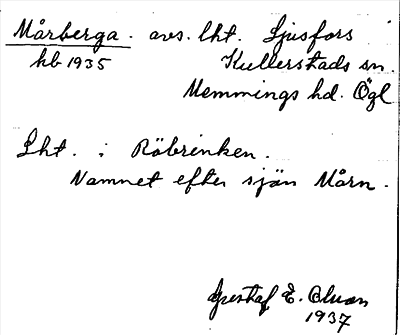 Mårberga. avs. lht. Ljusfors
hb 1935 Kullerstads sn.
Memmings hd. Ögl
Lht. i Röbrinken.
Namnet efter sjön Mårn.
Gustaf E.
1937